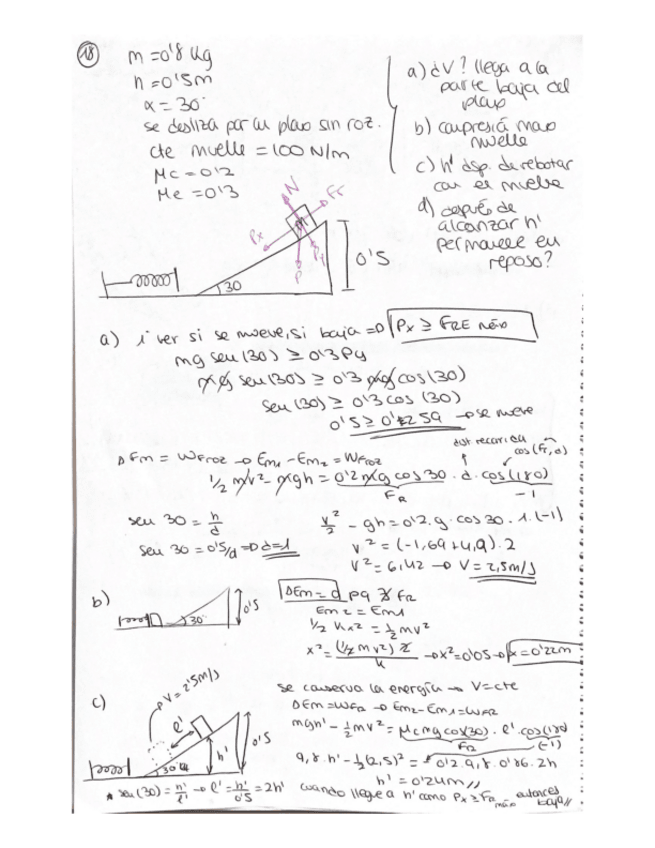 18
m = 0'8 kg
h = 0'5 m
α = 30°
se desliza por un plano sin roz.
cte muelle = 100 N/m
Mc = 0'2
Me = 0'3
a) ¿V? llega a la
parte baja del
plano
b) compresión max
muelle
c) h' dsp. de rebotar
con el muelle
d) después de
alcanzar h'
permanece en
reposo?
N
Fr
Px
Py
P
30
0'5
a) ver si se mueve, si baja => Px ≥ FRE máx
mg sen(30) ≥ 0'3 Py
mg sen(30) ≥ 0'3 mg cos(30)
sen(30) ≥ 0'3 cos(30)
0'5 ≥ 0'259 → se mueve
ΔEm = WFroz → Em1 - Em2 = WFroz
dist recorrida
cos(Fr, d)
1/2 mv² - mgh = 0'2 mg cos 30 · d · cos(180)
FR
-1
sen 30 = h/d
sen 30 = 0'5/d => d = 1
v²/2 - gh = 0'2 · g · cos 30 · 1 · (-1)
v² = (-1,69 + 4,9) · 2
v² = 6,42 → V = 2,5 m/s
b)
30
0'5
ΔEm = 0 pq ∄ FR
Em2 = Em1
1/2 Kx² = 1/2 mv²
x² = (1/2 mv²) 2 / K → x² = 0'05 → x = 0'22m
c)
V = 2'5 m/s
l'
h'
0'5
30
se conserva la energía → V = cte
ΔEm = WFR → Em2 - Em1 = WFR
mgh' - 1/2 mv² = Mc mg cos(30) · l' · cos(180)
FR
(-1)
9,8 · h' - 1/2 (2,5)² = - 0'2 · 9,8 · 0'86 · 2h
h' = 0'24m //
* sen(30) = h'/l' → l' = h'/0'5 = 2h'
cuando llegue a h' como Px ≥ FR máx entonces
baja //